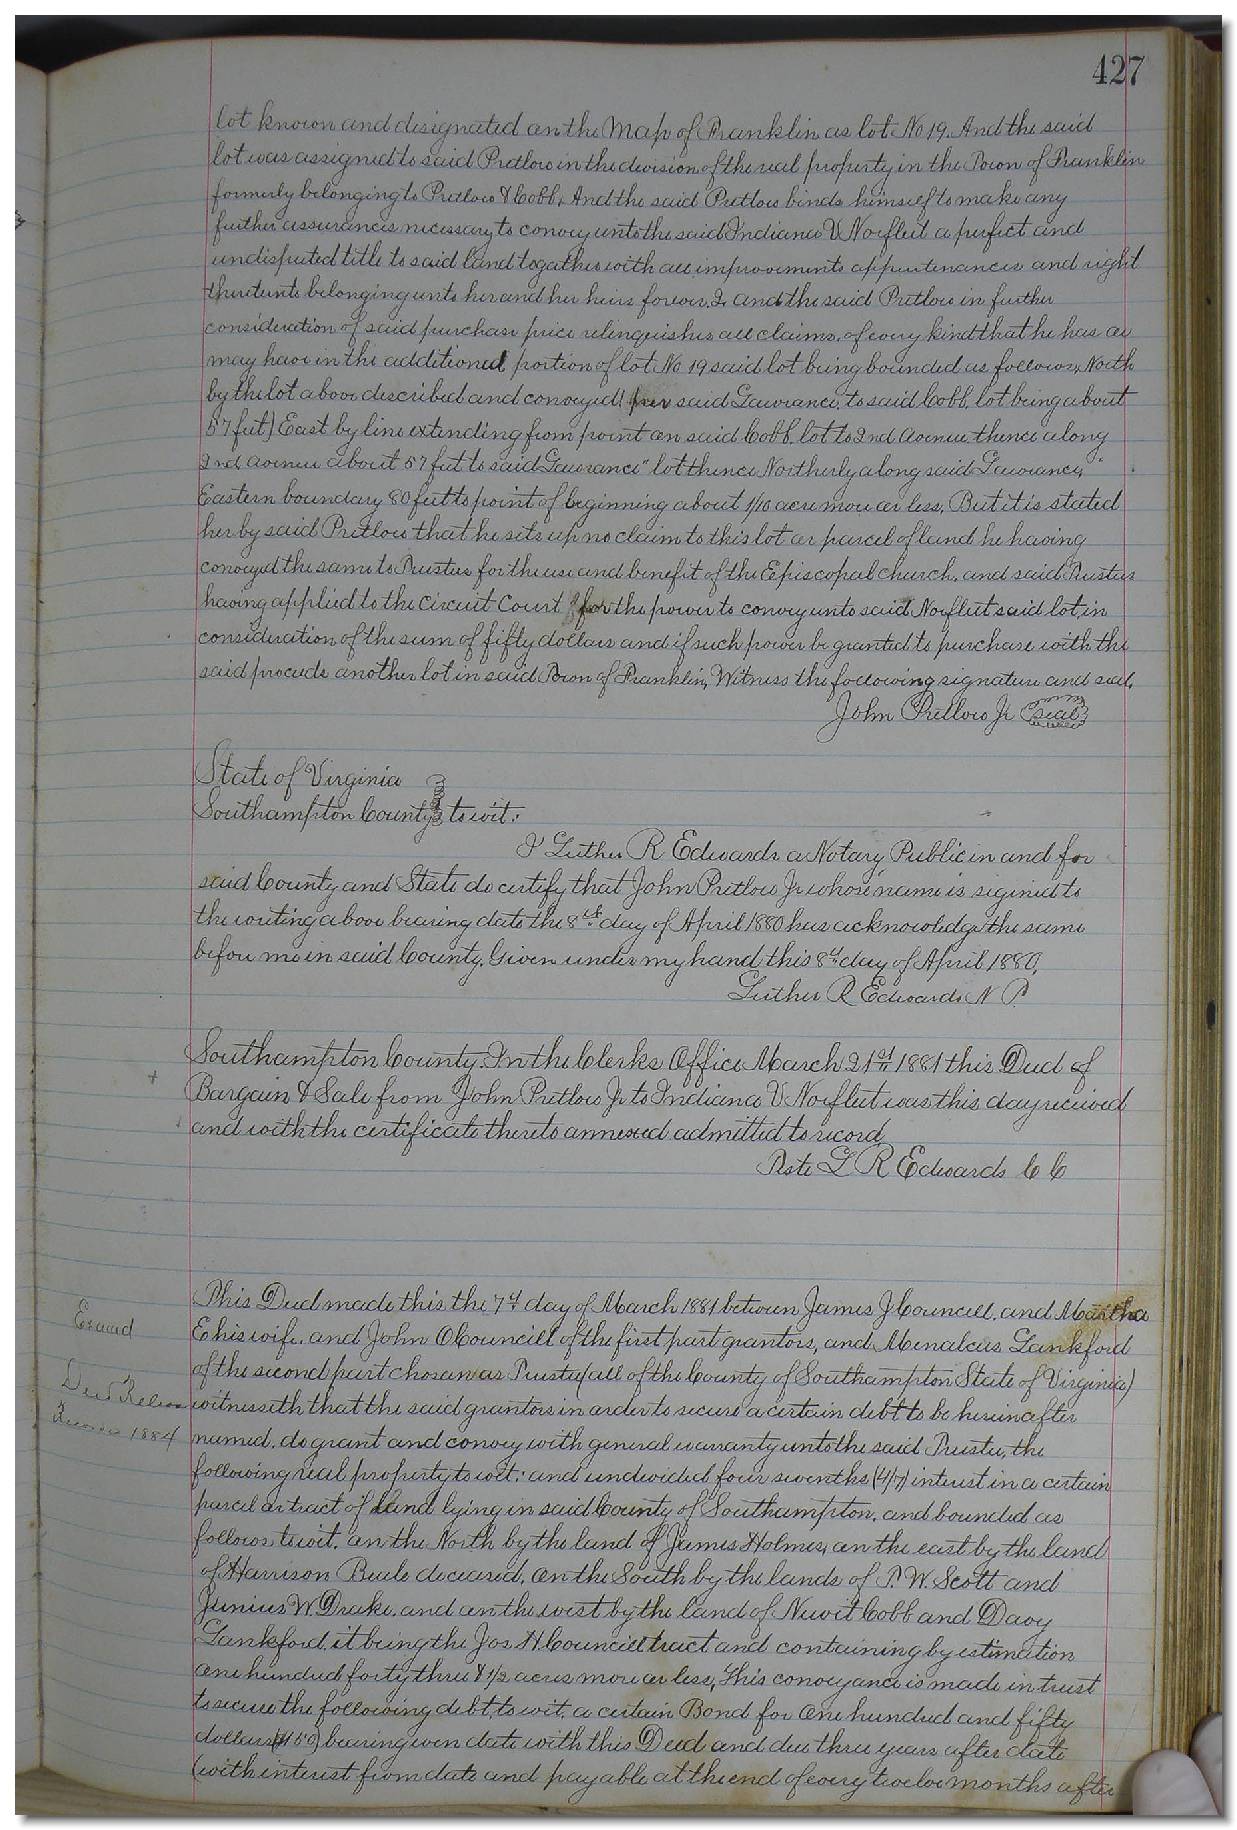 427
lot known and designated on the Map of Franklin as lot No 19. And the said
lot was assigned to said Pretlow in the devision of the real property in the Town of Franklin
formerly belonging to Pretlow & Cobb, And the said Pretlow binds himself to make any
further assurances necessary to convey unto the said Indiana V Norfleet a perfect and
undisputed title to said land together with all improvements appurtenances and right
thereunto belonging unto her and her heirs forever. And the said Pretlow in further
consideration of said purchase price relinquishes all claims, of every kind that he has or
may have in the additional portion of lot No 19 said lot being bounded as follows, North
by the lot above described and conveyed by said Lawrance, to said Cobb, lot being about
57 feet) East by line extending from point on said Cobb, lot to 2nd avenue, thence along
2nd avenue about 57 feet to said Lawrance" lot thence Northerly along said Lawrance,"
Eastern boundary 80 feet to point of beginning about 1/10 acre more or less. But it is stated
her by said Pretlow that he sets up no claim to this lot or parcel of land he having
conveyed the same to Trustees for the use and benefit of the Episcopal church, and said Trustees
having applied to the Circuit Court for the power to convey unto said Norfleet said lot, in
consideration of the sum of fifty dollars and if such power be granted to purchase with the
said proceeds another lot in said Town of Franklin, Witness the following signature and seal.
John Pretlow Jr seal
State of Virginia
Southampton County to wit:
I Luther R Edwards a Notary Public in and for
said County and State do certify that John Pretlow Jr whose name is sigined to
the writing above bearing date the 8th day of April 1880 has acknowledge the same
before me in said County. Given under my hand this 8th day of April 1880,
Luther R Edwards N P
Southampton County. In the Clerks Office March 21st 1881 this Deed of
Bargain & Sale from John Pretlow Jr to Indiana V Norfleet was this day received
and with the certificate thereto annexed admitted to record
Teste L R Edwards C C
This Deed made this the 7th day of March 1881 between James J Councill, and Martha
E his wife, and John O Councill of the first part grantors, and Menalcus Lankford
of the second part chosen as Trustee (all of the County of Southampton State of Virginia)
Deed Release
witnesseth that the said grantors in order to secure a certain debt to be hereinafter
1884
named, do grant and convey with general warranty unto the said Trustee, the
following real property to wit: and undevided four sevenths (4/7) interest in a certain
parcel or tract of land lying in said County of Southampton, and bounded as
follows to wit. on the North by the land of James Holmes, on the east by the land
of Harrison Beale deceased, on the South by the lands of P. W. Scott and
Junius W. Drake, and on the west by the land of Newit Cobb and Davy
Lankford, it being the Jos H Councill tract and containing by estimation
one hundred forty three & 1/2 acres more or less, This conveyance is made in trust
to secure the following debt, to wit, a certain Bond for one hundred and fifty
dollars ($150) bearing even date with this Deed and due three years after date
(with interest from date and payable at the end of every twelve months after